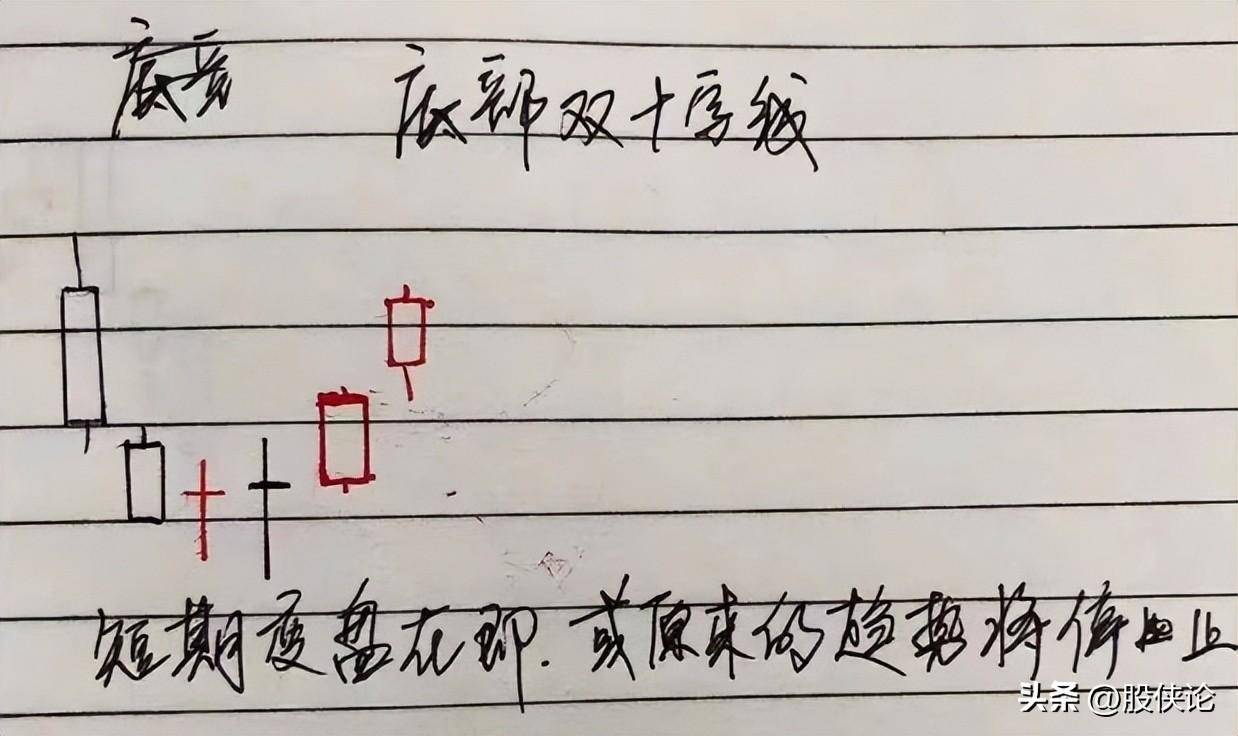 底部 底部双十字线
短期变盘在即.或原来的趋势将停止
头条 @股侠论